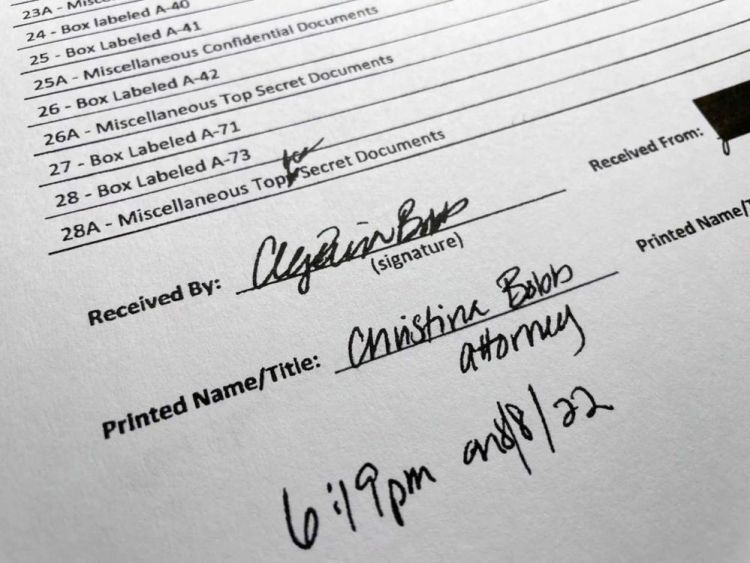 23A - Misc
24 - Box labeled A-40
25 - Box Labeled A-41
25A - Miscellaneous Confidential Documents
26 - Box Labeled A-42
26A - Miscellaneous Top Secret Documents
27 - Box Labeled A-71
28 - Box Labeled A-73
28A - Miscellaneous Top Secret Documents
Received By: Christina Bobb
(signature)
Received From:
Printed Name/Title: Christina Bobb
attorney
Printed Name/T
6:19pm on 8/8/22